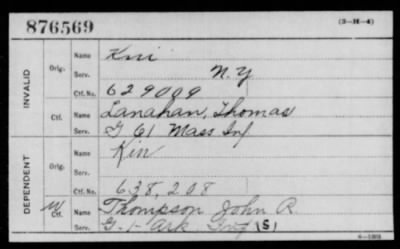 876569
(3-H-4)
INVALID
Orig.
Name Kni
Serv. N.Y.
Ctf. No. 629009
Ctf.
Name Lanahan, Thomas
Serv. G 61 Mass Inf
DEPENDENT
Orig.
Name Kin
Serv.
Ctf. No. 638,208
W Ctf.
Name Thompson John R.
Serv. G. 1 Ark. Inf (S)